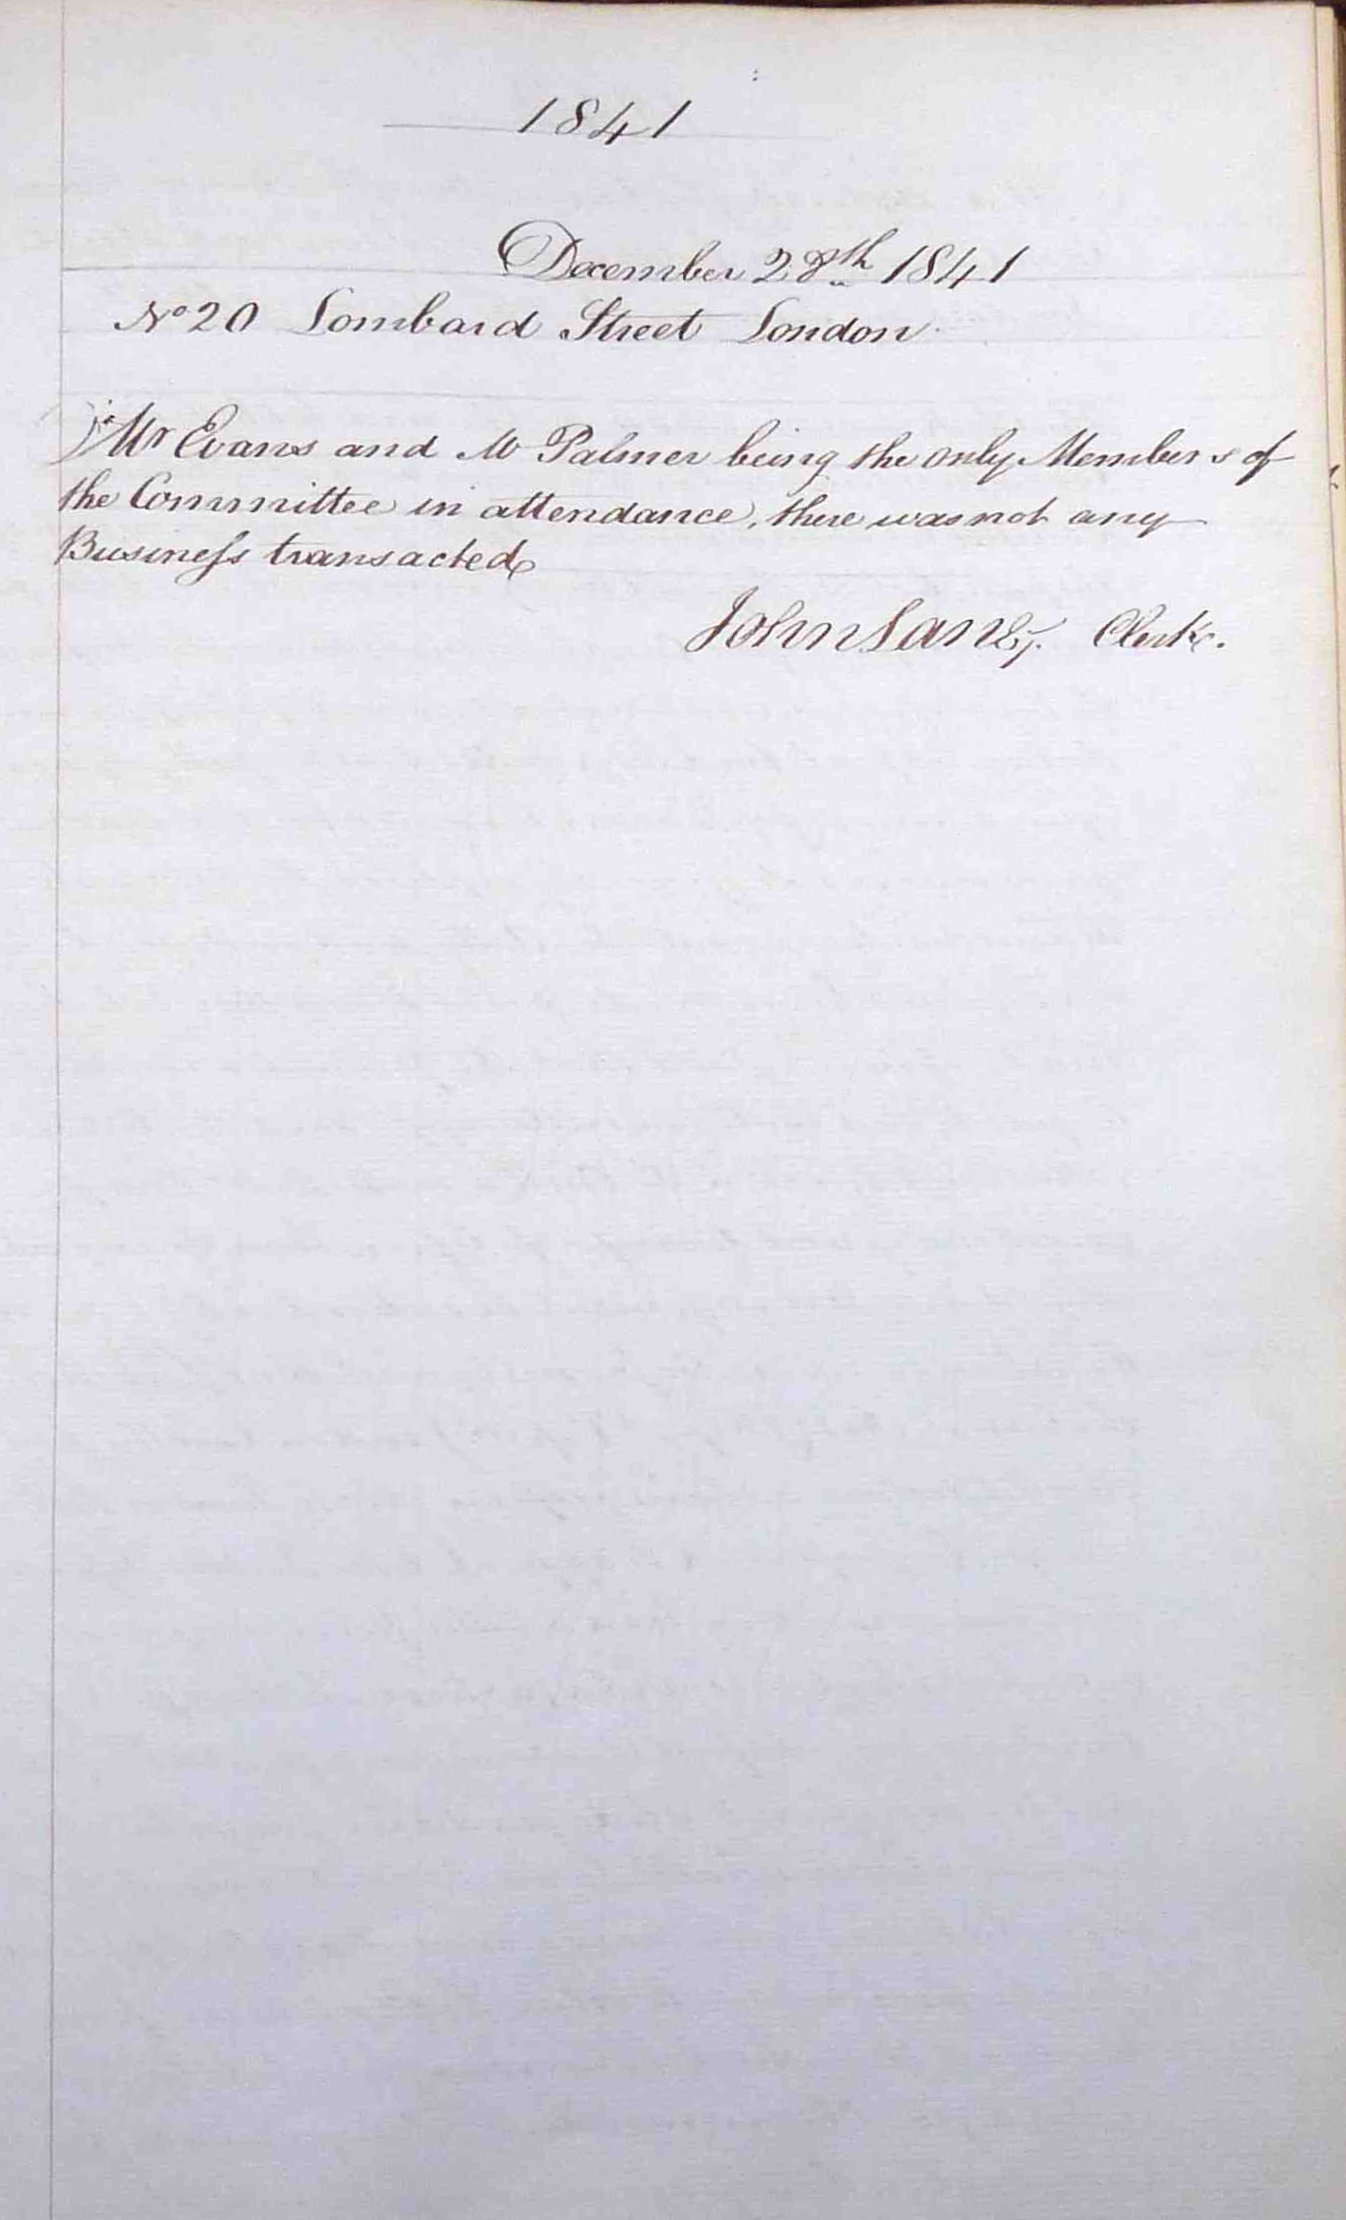 1841
December 28th 1841
No 20 Lombard Street London
Mr Evans and Mr Palmer being the only Members of
the Committee in attendance, there was not any
Business transacted
John Clerk.